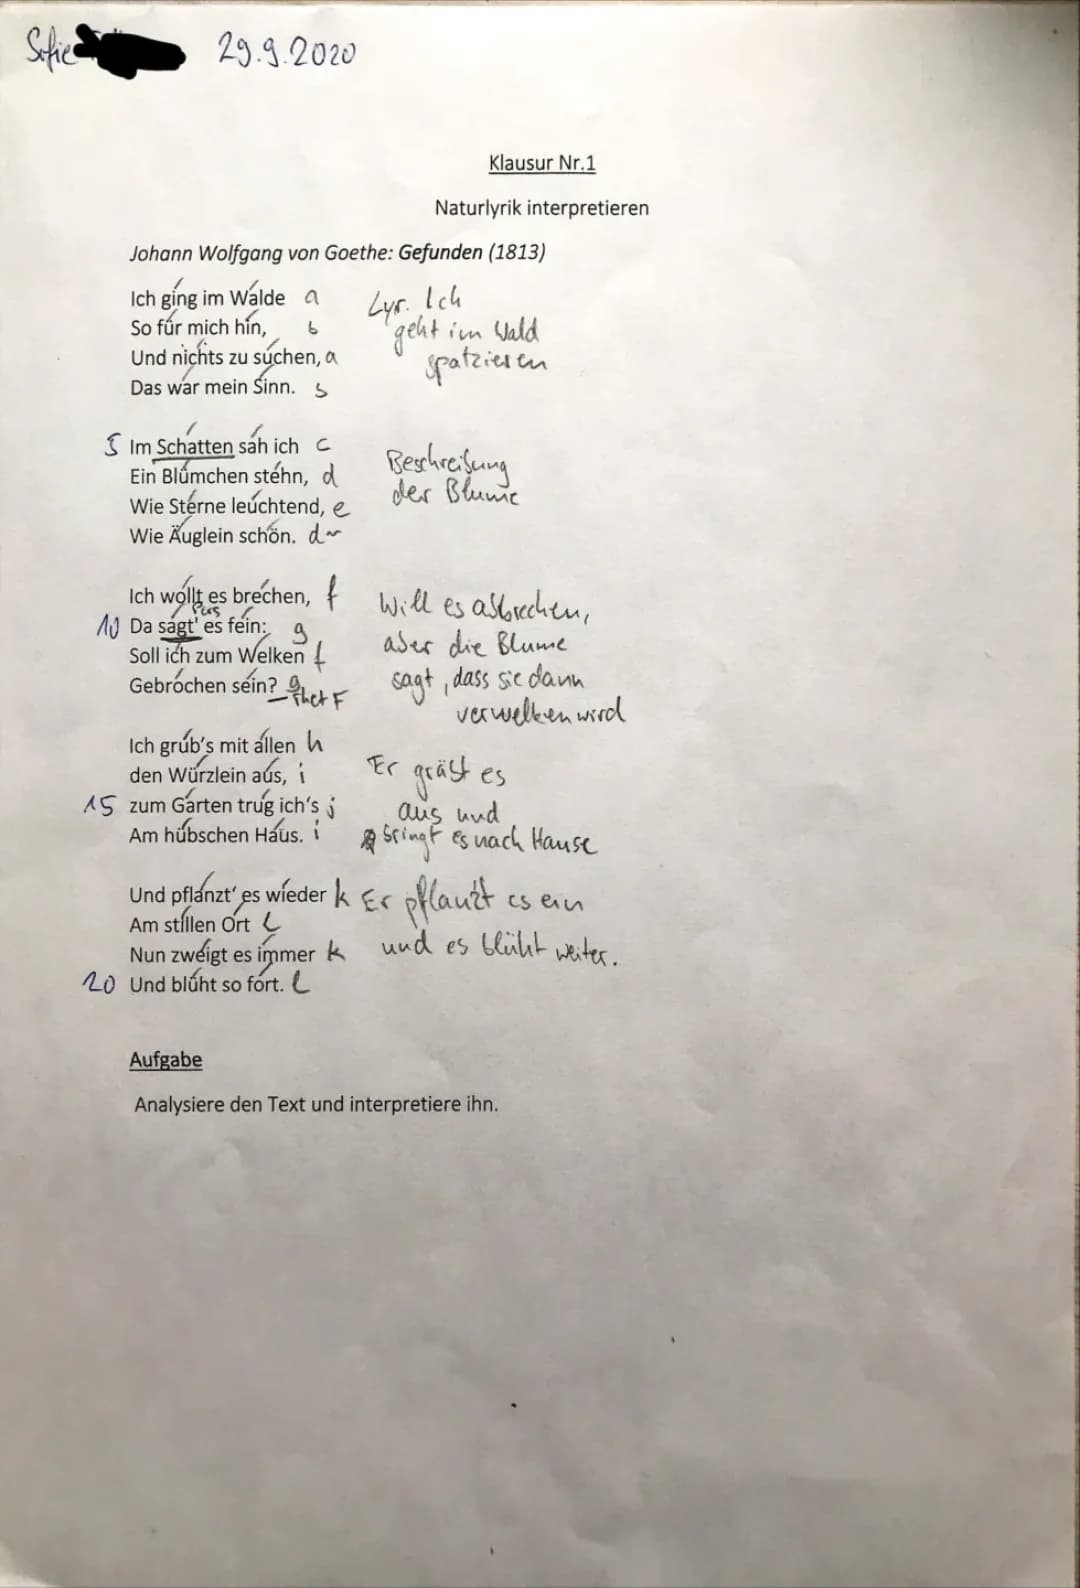 Sofie 29.9.2020
Klausur Nr.1
Naturlyrik interpretieren
Johann Wolfgang von Goethe: Gefunden (1813)
Ich ging im Walde a Lyr. Ich
So für mich hin, b geht im Wald
Und nichts zu suchen, a spatzieren
Das war mein Sinn. b
5 Im Schatten sah ich c Beschreibung
Ein Blümchen stehn, d der Blume
Wie Sterne leuchtend, e
Wie Äuglein schön. d
Ich wollt es brechen, f Will es abbrechen,
Pers
10 Da sagt' es fein: g aber die Blume
Soll ich zum Welken f sagt, dass sie dann
Gebrochen sein? g rhet F verwelken wird
Ich grub's mit allen h
den Würzlein aus, i Er gräbt es
15 zum Garten trug ich's j aus und
Am hübschen Haus. i bringt es nach Hause
Und pflanzt' es wieder k Er pflanzt es ein
Am stillen Ort l
Nun zweigt es immer k und es blüht weiter.
20 Und blüht so fort. l
Aufgabe
Analysiere den Text und interpretiere ihn.